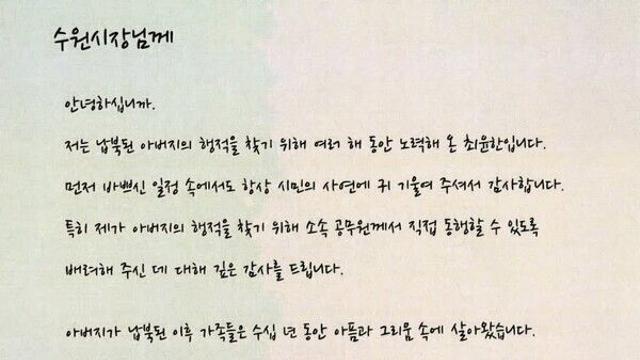 수원시장님께
안녕하십니까.
저는 납북된 아버지의 행적을 찾기 위해 여러 해 동안 노력해 온 최윤한입니다.
먼저 바쁘신 일정 속에서도 항상 시민의 사연에 귀 기울여 주셔서 감사합니다.
특히 제가 아버지의 행적을 찾기 위해 소속 공무원께서 직접 동행할 수 있도록
배려해 주신 데 대해 깊은 감사를 드립니다.
아버지가 납북된 이후 가족들은 수십 년 동안 아픔과 그리움 속에 살아왔습니다.